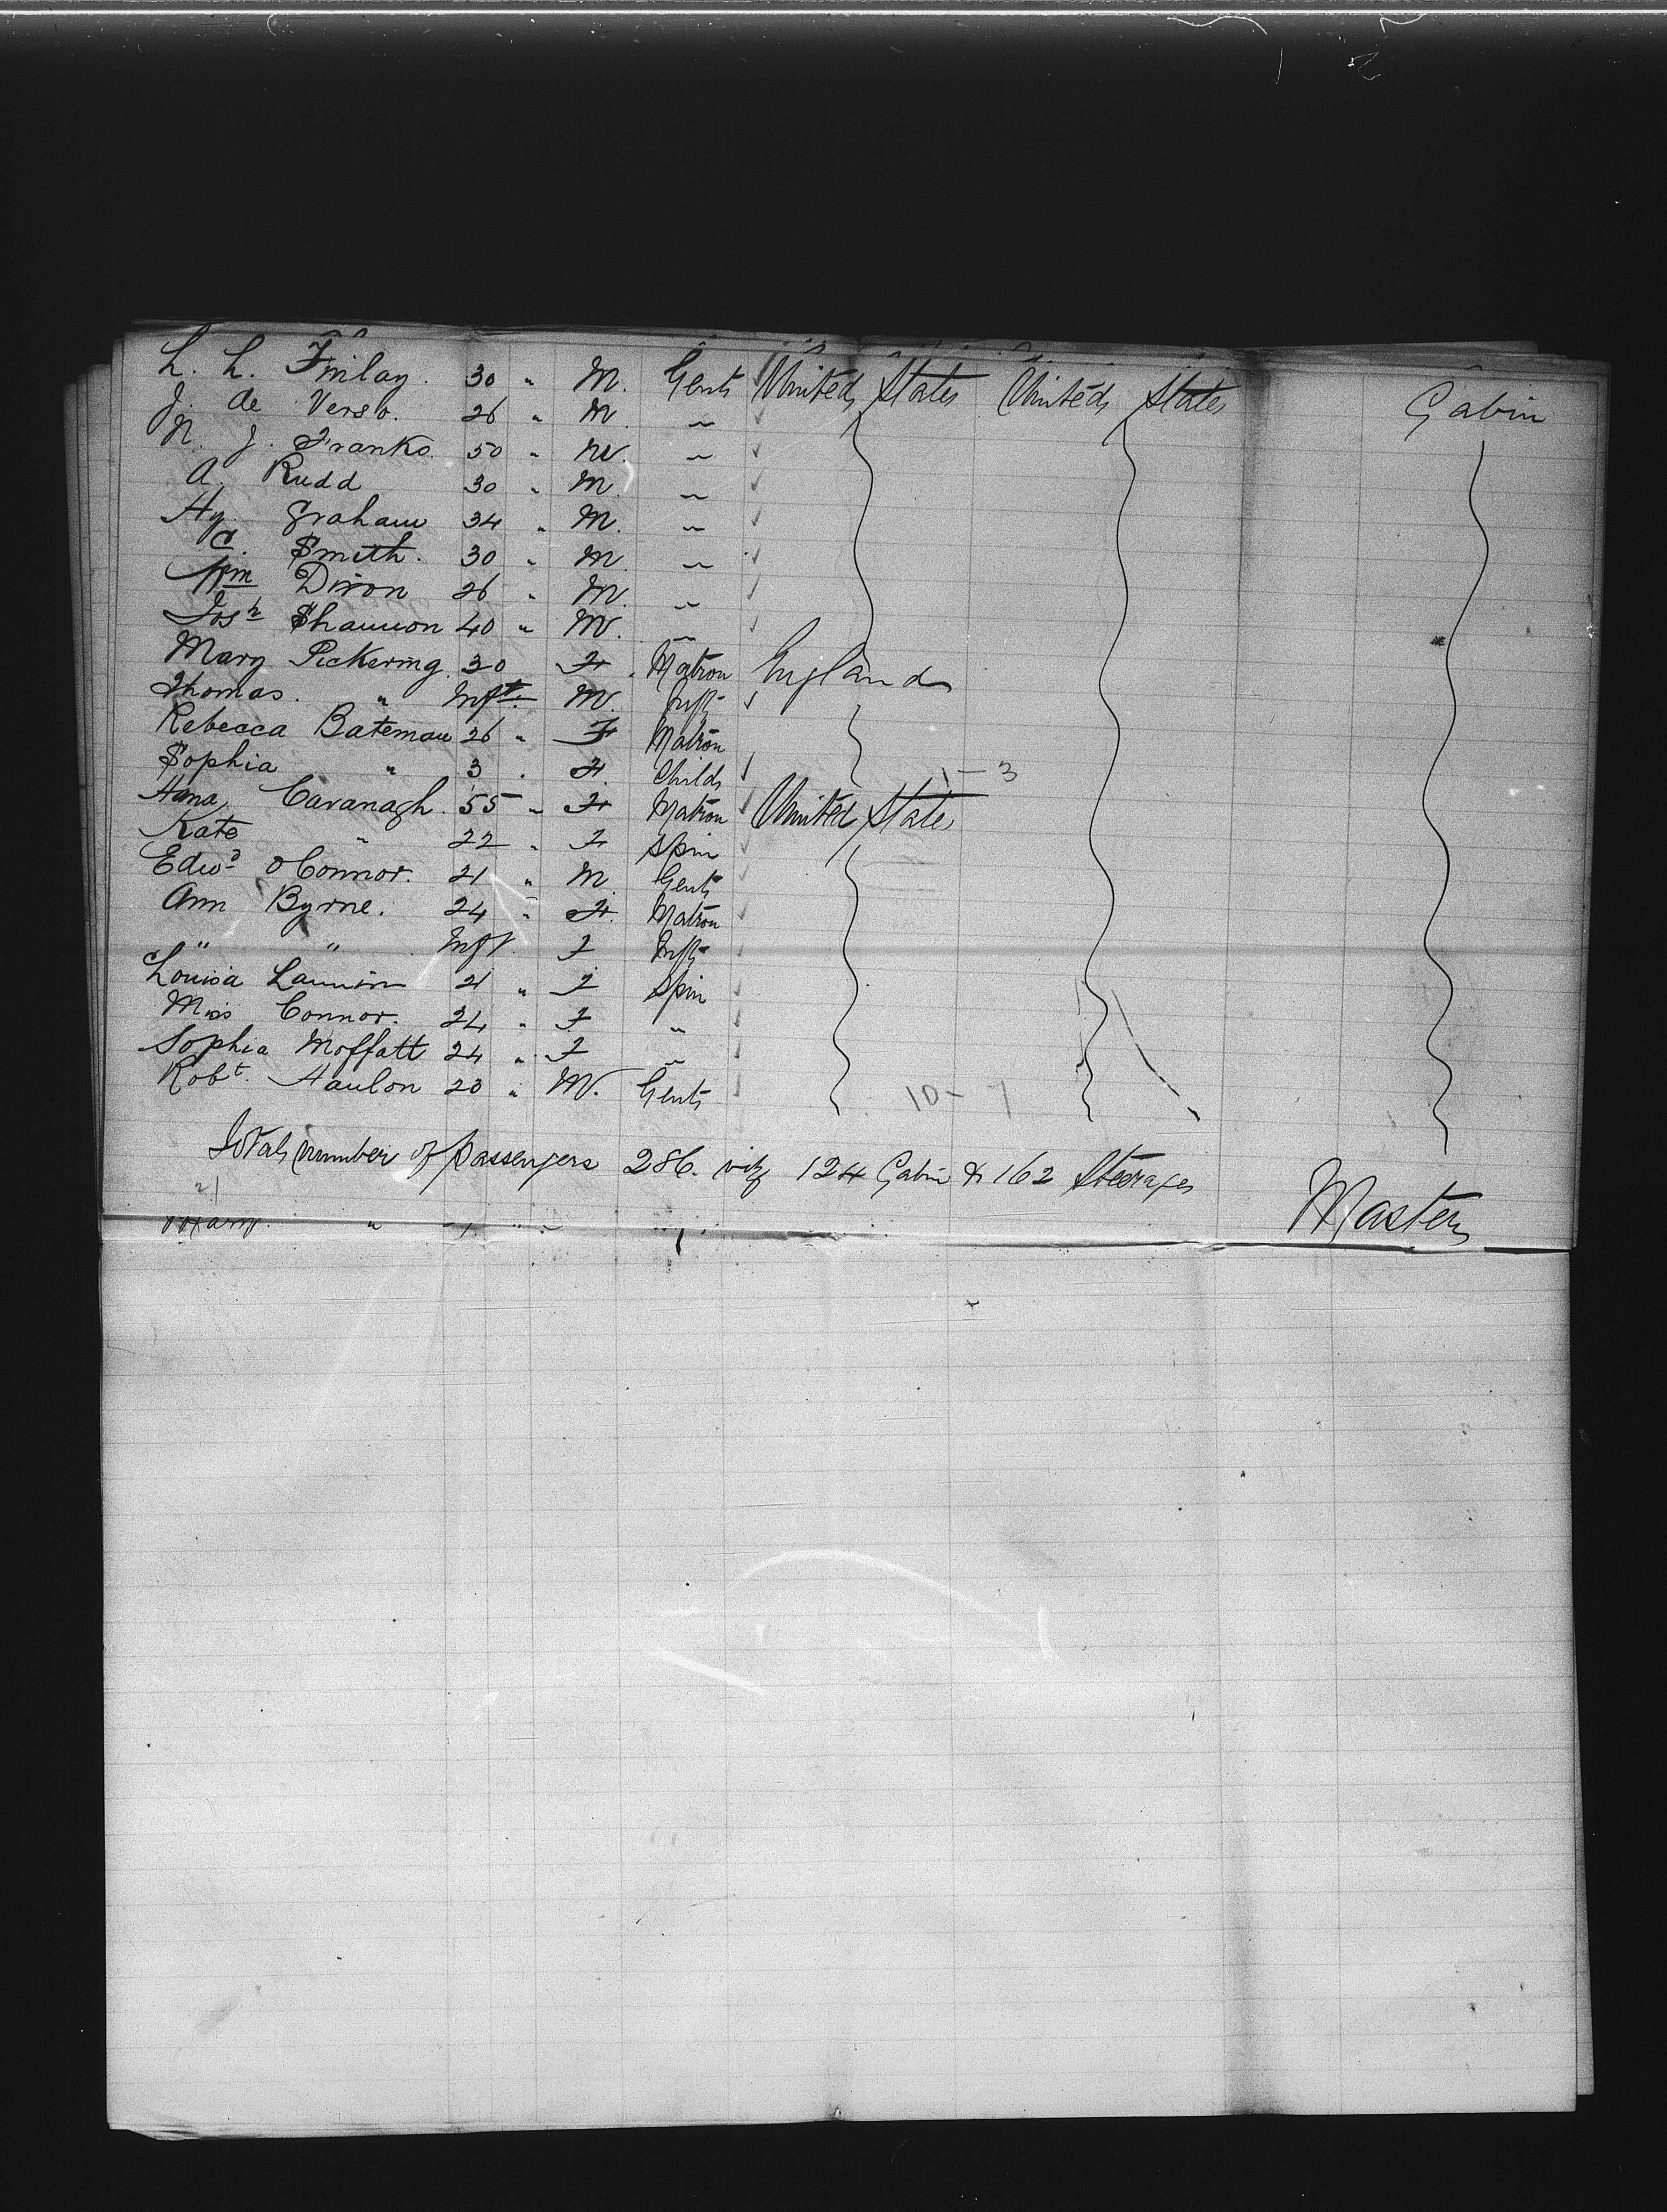 L. L. Finlay. 30 " M. Gent United States United States Cabin
J. de Verso. 26 " M. "
N. J. Franko. 50 " M. "
A. Rudd 30 " M. "
Hy. Graham 34 " M. "
C. Smith. 30 " M. "
Wm Dixon 26 " M. "
Josh Shannon 40 " M. "
Mary Pickering. 30 F. Matron England
Thomas. " Inft. M. Inft
Rebecca Bateman 26 " F Matron
Sophia " 3 . F. Child 1-3
Cavanagh. 55 " F Matron United States
Kate " 22 " F Spin
Edwd O'Connor. 21 " M Gent
Ann Byrne. 24 " F. Matron
" " Inft. F Inft
Louisa 21 " F Spin
Miss Connor. 24 " F "
Sophia Moffatt 24 " F "
Robt. Hanlon 20 " M. Gent 10-7
Total number of passengers 286. viz 124 Cabin & 162 Steerage
Master